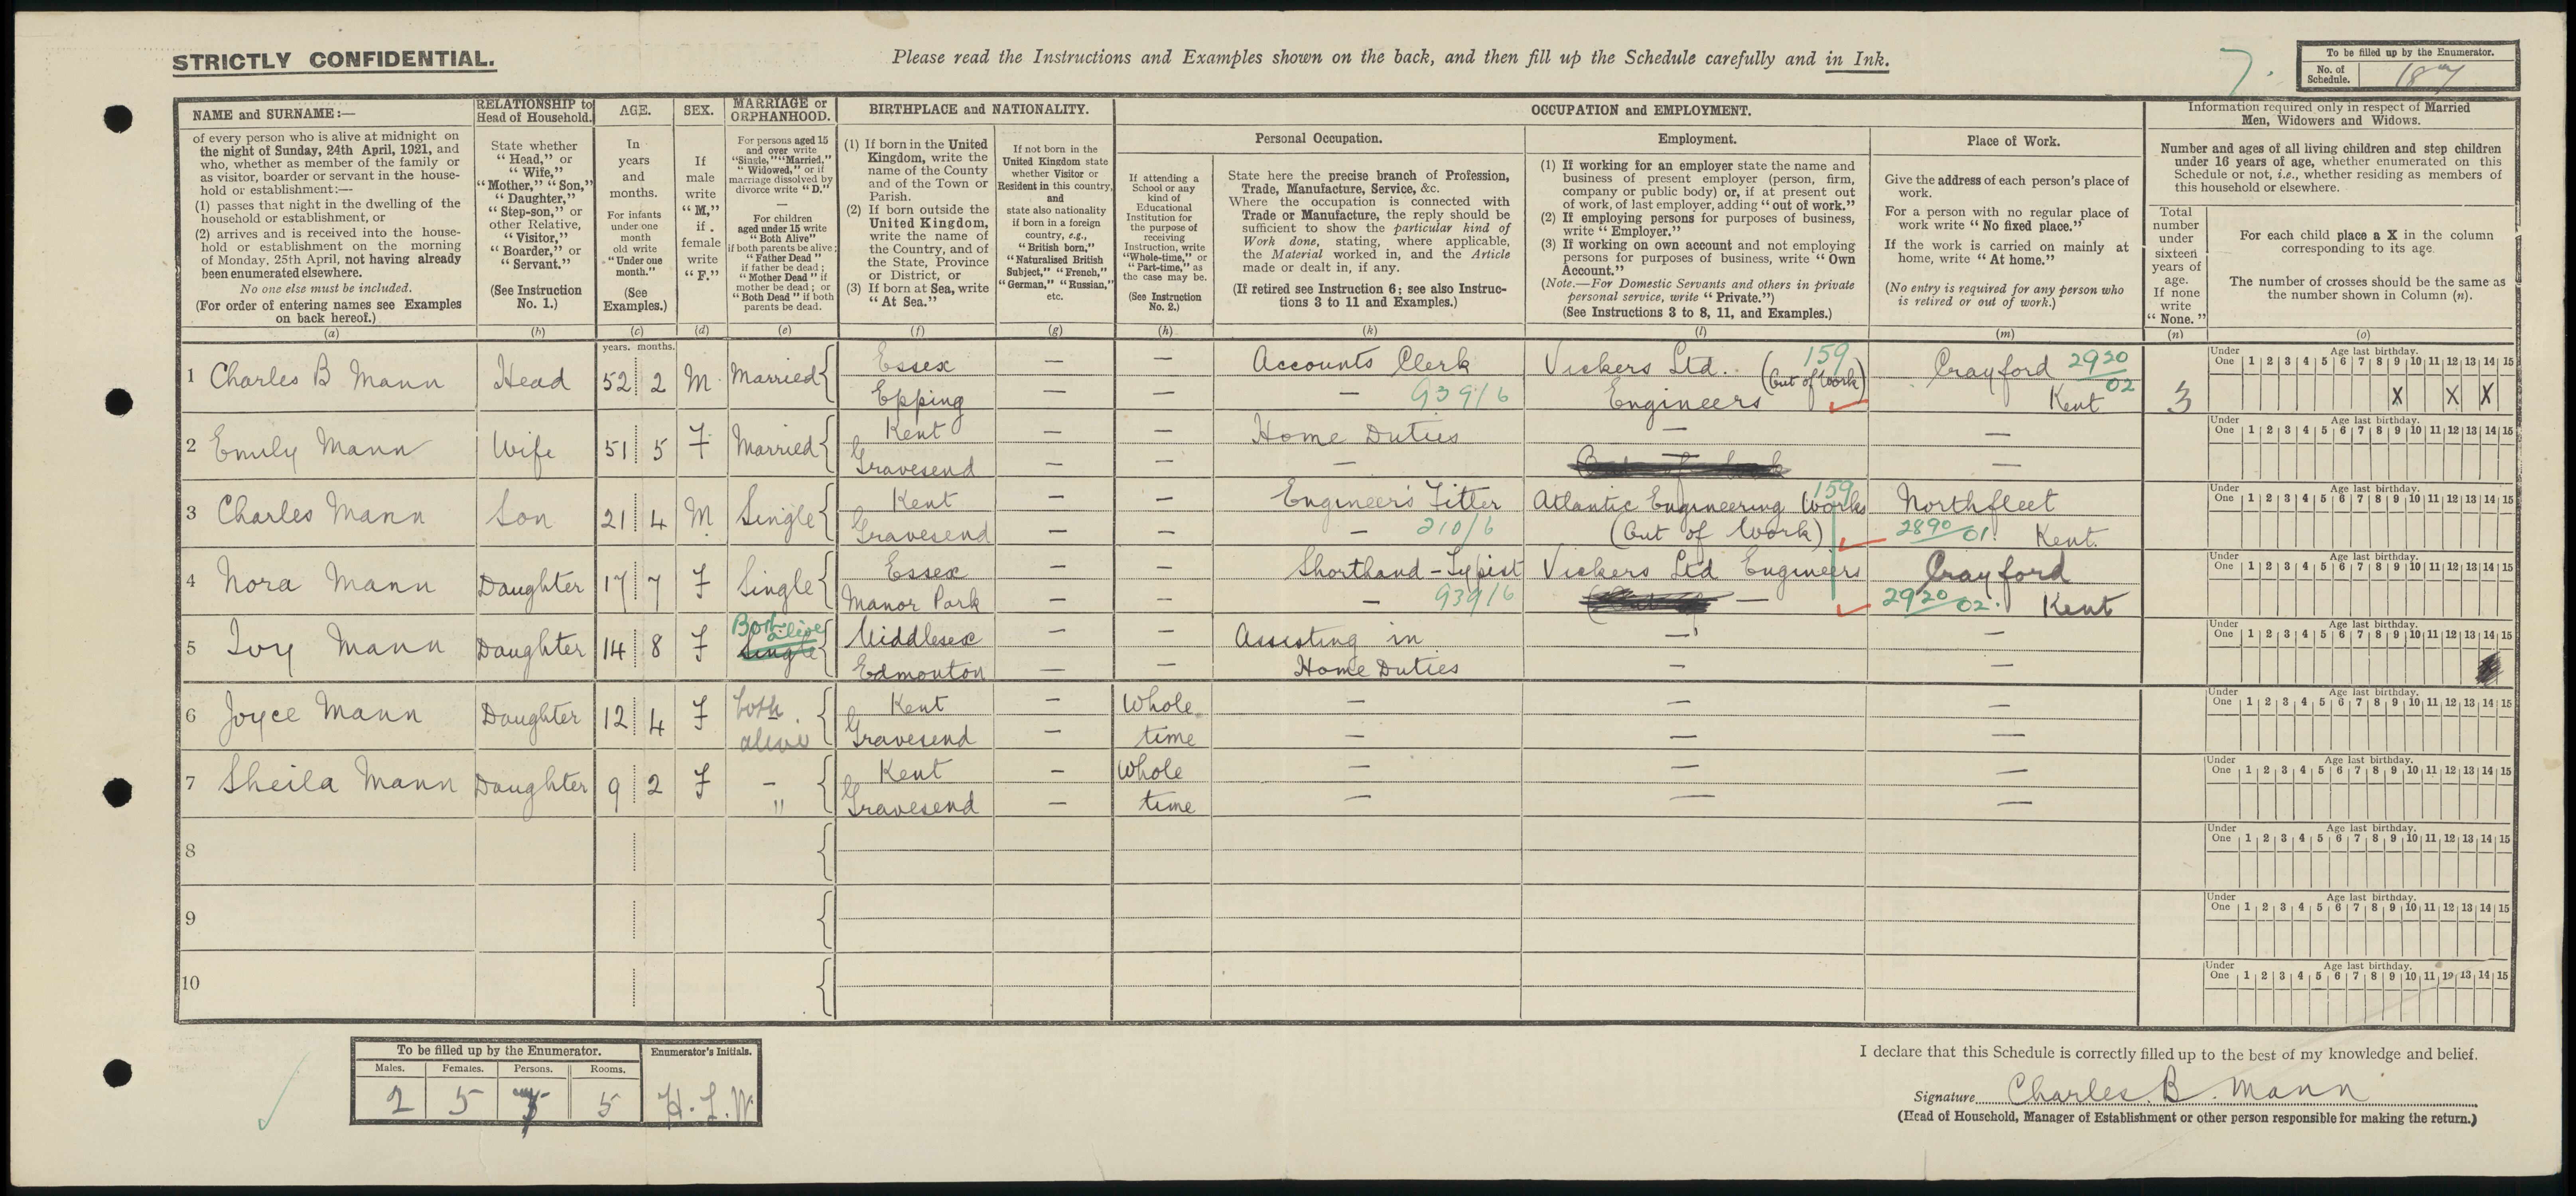 STRICTLY CONFIDENTIAL.
Please read the Instructions and Examples shown on the back, and then fill up the Schedule carefully and in Ink.
7.
To be filled up by the Enumerator.
No. of Schedule. 187
NAME and SURNAME:—
of every person who is alive at midnight on
the night of Sunday, 24th April, 1921, and
who, whether as member of the family or
as visitor, boarder or servant in the house-
hold or establishment:—
(1) passes that night in the dwelling of the
household or establishment, or
(2) arrives and is received into the house-
hold or establishment on the morning
of Monday, 25th April, not having already
been enumerated elsewhere.
No one else must be included.
(For order of entering names see Examples
on back hereof.)
(a)
RELATIONSHIP to
Head of Household.
State whether
"Head," or
"Wife,"
"Mother," "Son,"
"Daughter,"
"Step-son," or
other Relative,
"Visitor,"
"Boarder," or
"Servant."
(See Instruction
No. 1.)
(b)
AGE.
In
years
and
months.
For infants
under one
month
old write
"Under one
month."
(See
Examples.)
(c)
SEX.
If
male
write
"M,"
if
female
write
"F."
(d)
MARRIAGE or
ORPHANHOOD.
For persons aged 15
and over write
"Single," "Married,"
"Widowed," or if
marriage dissolved by
divorce write "D."
—
For children
aged under 15 write
"Both Alive"
if both parents be alive;
"Father Dead"
if father be dead;
"Mother Dead" if
mother be dead; or
"Both Dead" if both
parents be dead.
(e)
BIRTHPLACE and NATIONALITY.
(1) If born in the United
Kingdom, write the
name of the County
and of the Town or
Parish.
(2) If born outside the
United Kingdom,
write the name of
the Country, and of
the State, Province
or District, or
(3) If born at Sea, write
"At Sea."
(f)
If not born in the
United Kingdom state
whether Visitor or
Resident in this country,
and
state also nationality
if born in a foreign
country, e.g.,
"British born,"
"Naturalised British
Subject," "French,"
"German," "Russian,"
etc.
(g)
OCCUPATION and EMPLOYMENT.
If attending a
School or any
kind of
Educational
Institution for
the purpose of
receiving
Instruction, write
"Whole-time," or
"Part-time," as
the case may be.
(See Instruction
No. 2.)
(h)
Personal Occupation.
State here the precise branch of Profession,
Trade, Manufacture, Service, &c.
Where the occupation is connected with
Trade or Manufacture, the reply should be
sufficient to show the particular kind of
Work done, stating, where applicable,
the Material worked in, and the Article
made or dealt in, if any.
(If retired see Instruction 6; see also Instruc-
tions 3 to 11 and Examples.)
(k)
Employment.
(1) If working for an employer state the name and
business of present employer (person, firm,
company or public body) or, if at present out
of work, of last employer, adding "out of work."
(2) If employing persons for purposes of business,
write "Employer."
(3) If working on own account and not employing
persons for purposes of business, write "Own
Account."
(Note.—For Domestic Servants and others in private
personal service, write "Private.")
(See Instructions 3 to 8, 11, and Examples.)
(l)
Place of Work.
Give the address of each person's place of
work.
For a person with no regular place of
work write "No fixed place."
If the work is carried on mainly at
home, write "At home."
(No entry is required for any person who
is retired or out of work.)
(m)
Information required only in respect of Married
Men, Widowers and Widows.
Number and ages of all living children and step children
under 16 years of age, whether enumerated on this
Schedule or not, i.e., whether residing as members of
this household or elsewhere.
Total
number
under
sixteen
years of
age.
If none
write
"None."
(n)
For each child place a X in the column
corresponding to its age.
The number of crosses should be the same as
the number shown in Column (n).
(o)
years. months.
Under One Age last birthday. 1 2 3 4 5 6 7 8 9 10 11 12 13 14 15
1 Charles B Mann Head 52 2 M. Married Essex — — Accounts Clerk Vickers Ltd. (Out of Work) 159 Crayford 2920/02 3 X X X
Epping — — — 939/6 Engineers Kent
Under One Age last birthday. 1 2 3 4 5 6 7 8 9 10 11 12 13 14 15
2 Emily Mann Wife 51 5 F Married Kent — — Home Duties — —
Gravesend — — — —
Under One Age last birthday. 1 2 3 4 5 6 7 8 9 10 11 12 13 14 15
3 Charles Mann Son 21 4 M Single Kent — — Engineer's Fitter Atlantic Engineering Works 159 Northfleet
Gravesend — — — 210/6 (Out of Work) 2890/01 Kent.
Under One Age last birthday. 1 2 3 4 5 6 7 8 9 10 11 12 13 14 15
4 Nora Mann Daughter 17 7 F Single Essex — — Shorthand-Typist Vickers Ltd Engineers Crayford
Manor Park — — — 939/6 — 2920/02. Kent
Under One Age last birthday. 1 2 3 4 5 6 7 8 9 10 11 12 13 14 15
5 Ivy Mann Daughter 14 8 F Both alive Single Middlesex — — Assisting in — —
Edmonton — — Home Duties — —
Under One Age last birthday. 1 2 3 4 5 6 7 8 9 10 11 12 13 14 15
6 Joyce Mann Daughter 12 4 F both Kent — Whole — — —
alive Gravesend — time — — —
Under One Age last birthday. 1 2 3 4 5 6 7 8 9 10 11 12 13 14 15
7 Sheila Mann Daughter 9 2 F — Kent — Whole — — —
" Gravesend — time — — —
Under One Age last birthday. 1 2 3 4 5 6 7 8 9 10 11 12 13 14 15
8
Under One Age last birthday. 1 2 3 4 5 6 7 8 9 10 11 12 13 14 15
9
Under One Age last birthday. 1 2 3 4 5 6 7 8 9 10 11 12 13 14 15
10
To be filled up by the Enumerator. Enumerator's Initials.
Males. Females. Persons. Rooms.
2 5 7 5 H.L.W.
I declare that this Schedule is correctly filled up to the best of my knowledge and belief.
Signature Charles. B. Mann
(Head of Household, Manager of Establishment or other person responsible for making the return.)